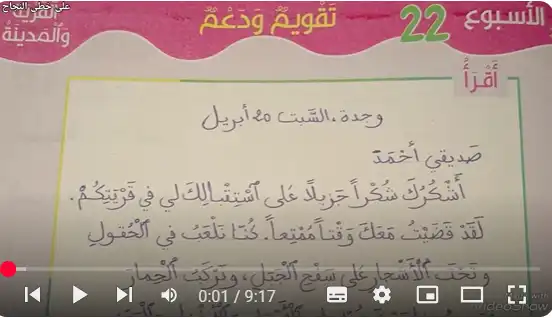 على خطى النجاح
الأسبوع 22
تَقْوِيمٌ وَدَعْمٌ
القرية
وَالْمَدينَةُ
أَقْرَأُ
وجدة، السَّبت 20 أبريل
صَديقي أَحْمَدَ
أَشْكُرُكَ شُكْراً جَزيلاً عَلى ٱسْتِقْبالِكَ لي في قَرْيَتِكُمْ.
لَقَدْ قَضَيْتُ مَعَكَ وَقْتاً مُمْتِعاً. كُنّا نَلْعَبُ في ٱلْحُقولِ
وَتَحْتَ ٱلْأَشْجارِ عَلى سَفْحِ ٱلْجَبَلِ، وَنَرْكَبُ ٱلْحِمارَ
0:01 / 9:17
with
VideoShow